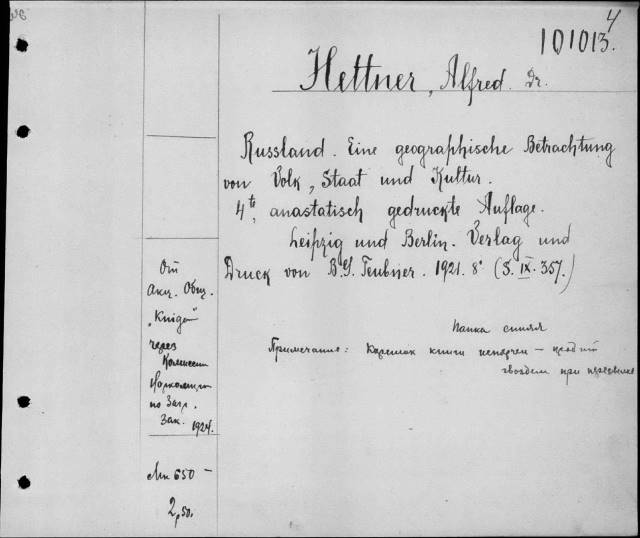 4
101013.
Hettner, Alfred. Dr.
Russland. Eine geographische Betrachtung
von Volk, Staat und Kultur.
4te, anastatisch gedruckte Auflage.
Leipzig und Berlin. Verlag und
Druck von B.G. Teubner. 1921. 8° (S. IX. 357.)
От
Акц. Общ.
„Книга“
через
Комиссию
по Загр.
Зак. 1924.
Мк 650 –
2 р 50.
Папка синяя
Примечание: Корешок книги испорчен –
гвоздем при